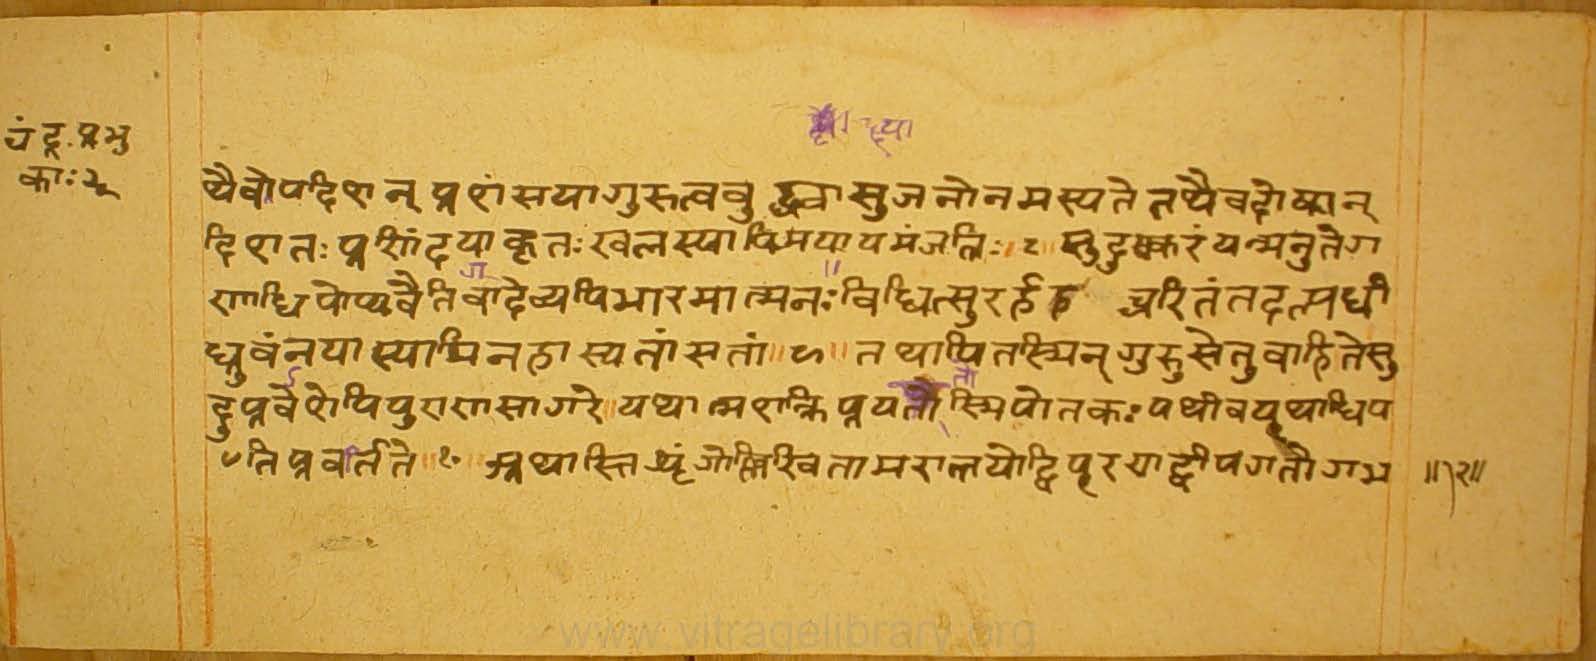 चंद्र. प्रभु
का: २
थैवोपदिशन् प्रशंसया गुरुत्वबुद्ध्वा सुजनो नमस्यते तथैव दोषान्
दिशतः प्रनिंदया कृतः खलस्यापि मयायमंजलिः ॥ ८ ॥ सुदुष्करं यन्मनुते ग
णाधिपोप्यवैति वाग्देव्यपि भारमात्मनः ॥ विधित्सुरर्ह च्चरितं तदल्पधी
ध्रुवं न यास्यामि न हास्यतां सतां ॥ ९ ॥ तथापि तस्मिन् गुरुसेतुवाहिते सु
दुःप्रवेशेपि पुराणसागरे ॥ यथात्मशक्ति प्रयतोस्मि पोतकः पथीव यूथाधिप
तिप्रवर्तिते ॥ १० ॥ अथास्ति शृंगोल्लिखितामरालयो द्विपूरयाद्वीपगतो गभ ॥२॥
www.vitragelibrary.org